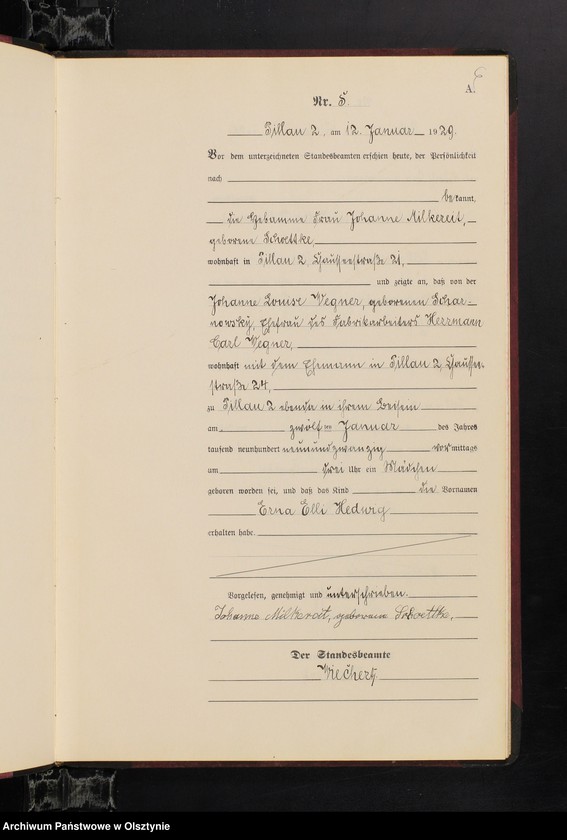 6
A.
Nr. 5
Pillau 2, am 12. Januar 1929.
Vor dem unterzeichneten Standesbeamten erschien heute, der Persönlichkeit
nach
bekannt,
die Hebamme Frau Johanne Milkereit,
geborene Schoettke
wohnhaft in Pillau 2, Chausseestraße 21,
und zeigte an, daß von der
Johanne Louise Wegner, geborenen Schar-
nowsky, Ehefrau des Fabrikarbeiters Herrmann
Carl Wegner,
wohnhaft mit dem Ehemann in Pillau 2, Chaussee-
straße 24,
zu Pillau 2 ebenda in ihrem Beisein
am zwölften Januar des Jahres
tausend neunhundert neunundzwanzig vormittags
um drei Uhr ein Mädchen
geboren worden sei, und daß das Kind die Vornamen
Erna Elli Hedwig
erhalten habe.
Vorgelesen, genehmigt und unterschrieben.
Johanne Milkereit, geborene Schoettke,
Der Standesbeamte
Wiechert.
Archiwum Państwowe w Olsztynie